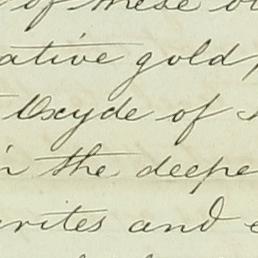 of these
ative gold,
Oxyde of
in the deepe
rites and